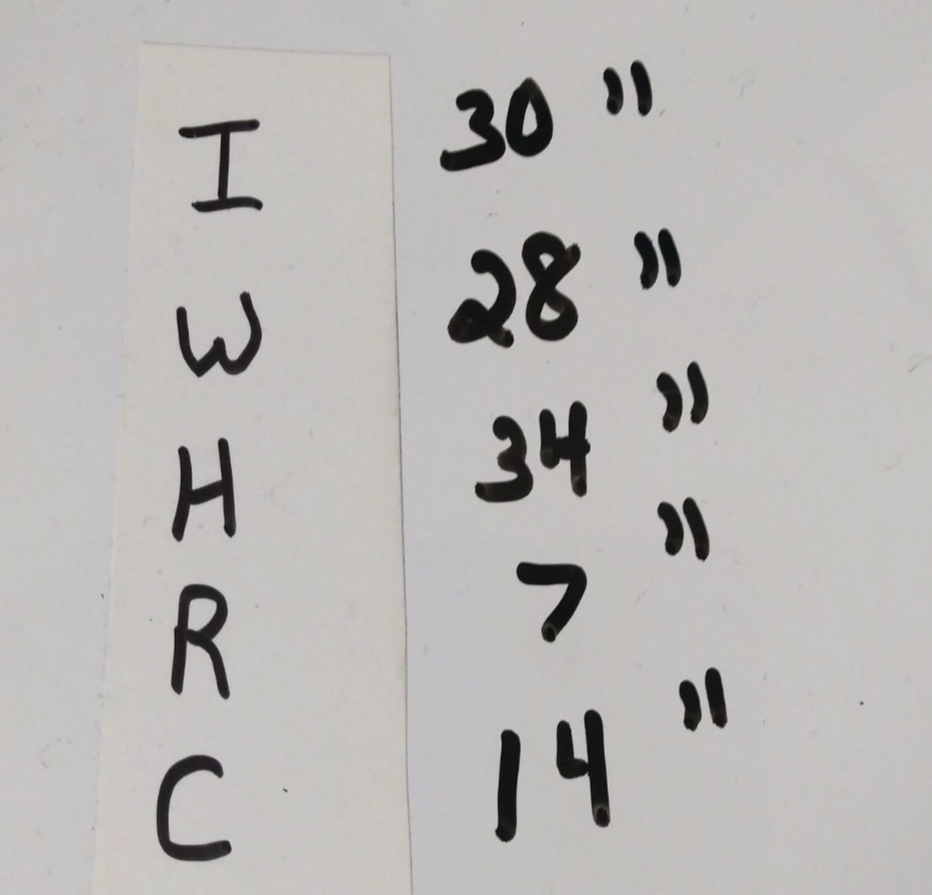 I 30"
W 28"
H 34"
R 7"
C 14"